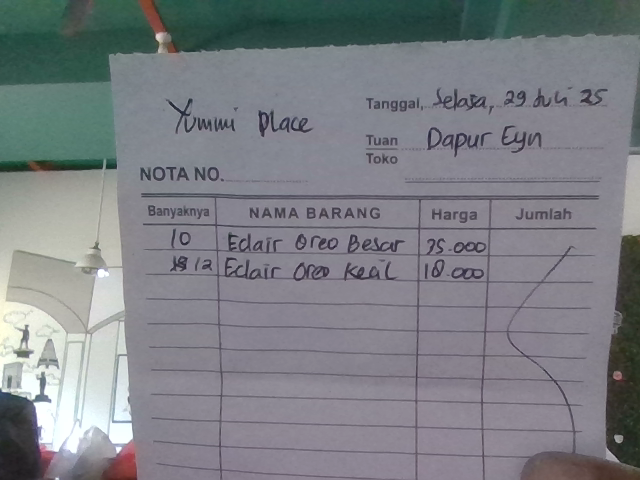 Yummi Place
Tanggal, Selasa, 29 Juli 25
Tuan Dapur Eyn
Toko
NOTA NO.
Banyaknya NAMA BARANG Harga Jumlah
10 Eclair Oreo Besar 35.000
12 Eclair Oreo Kecil 18.000